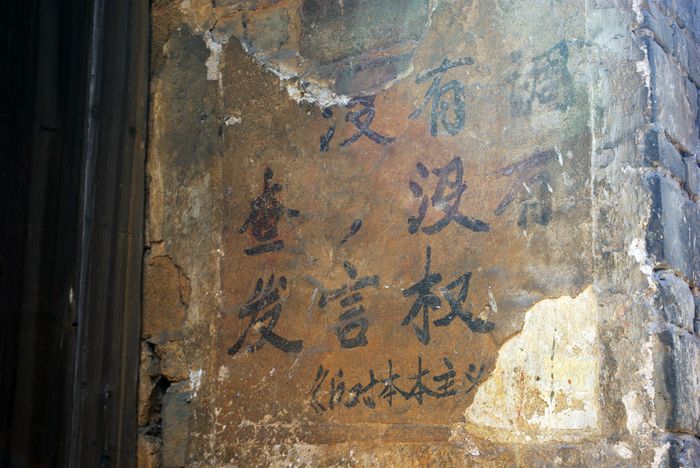 没有调
查，没有
发言权
《反对本本主义